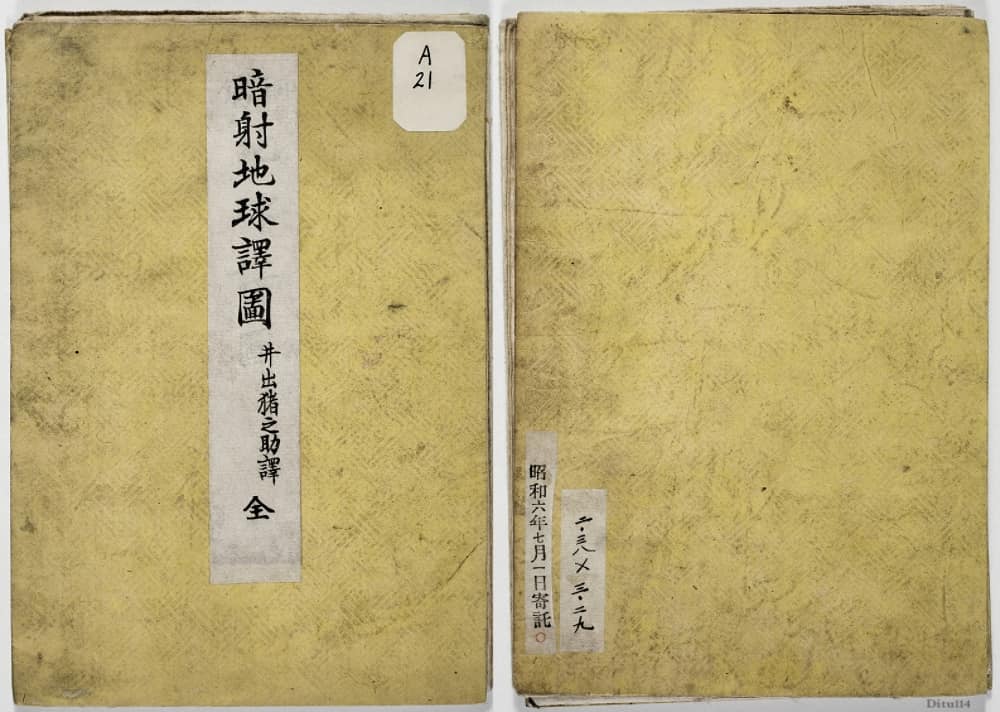 暗射地球譯圖
井出猪之助譯
全
A
21
昭和六年七月一日寄託〇
二・三八×三・二九
Ditul14